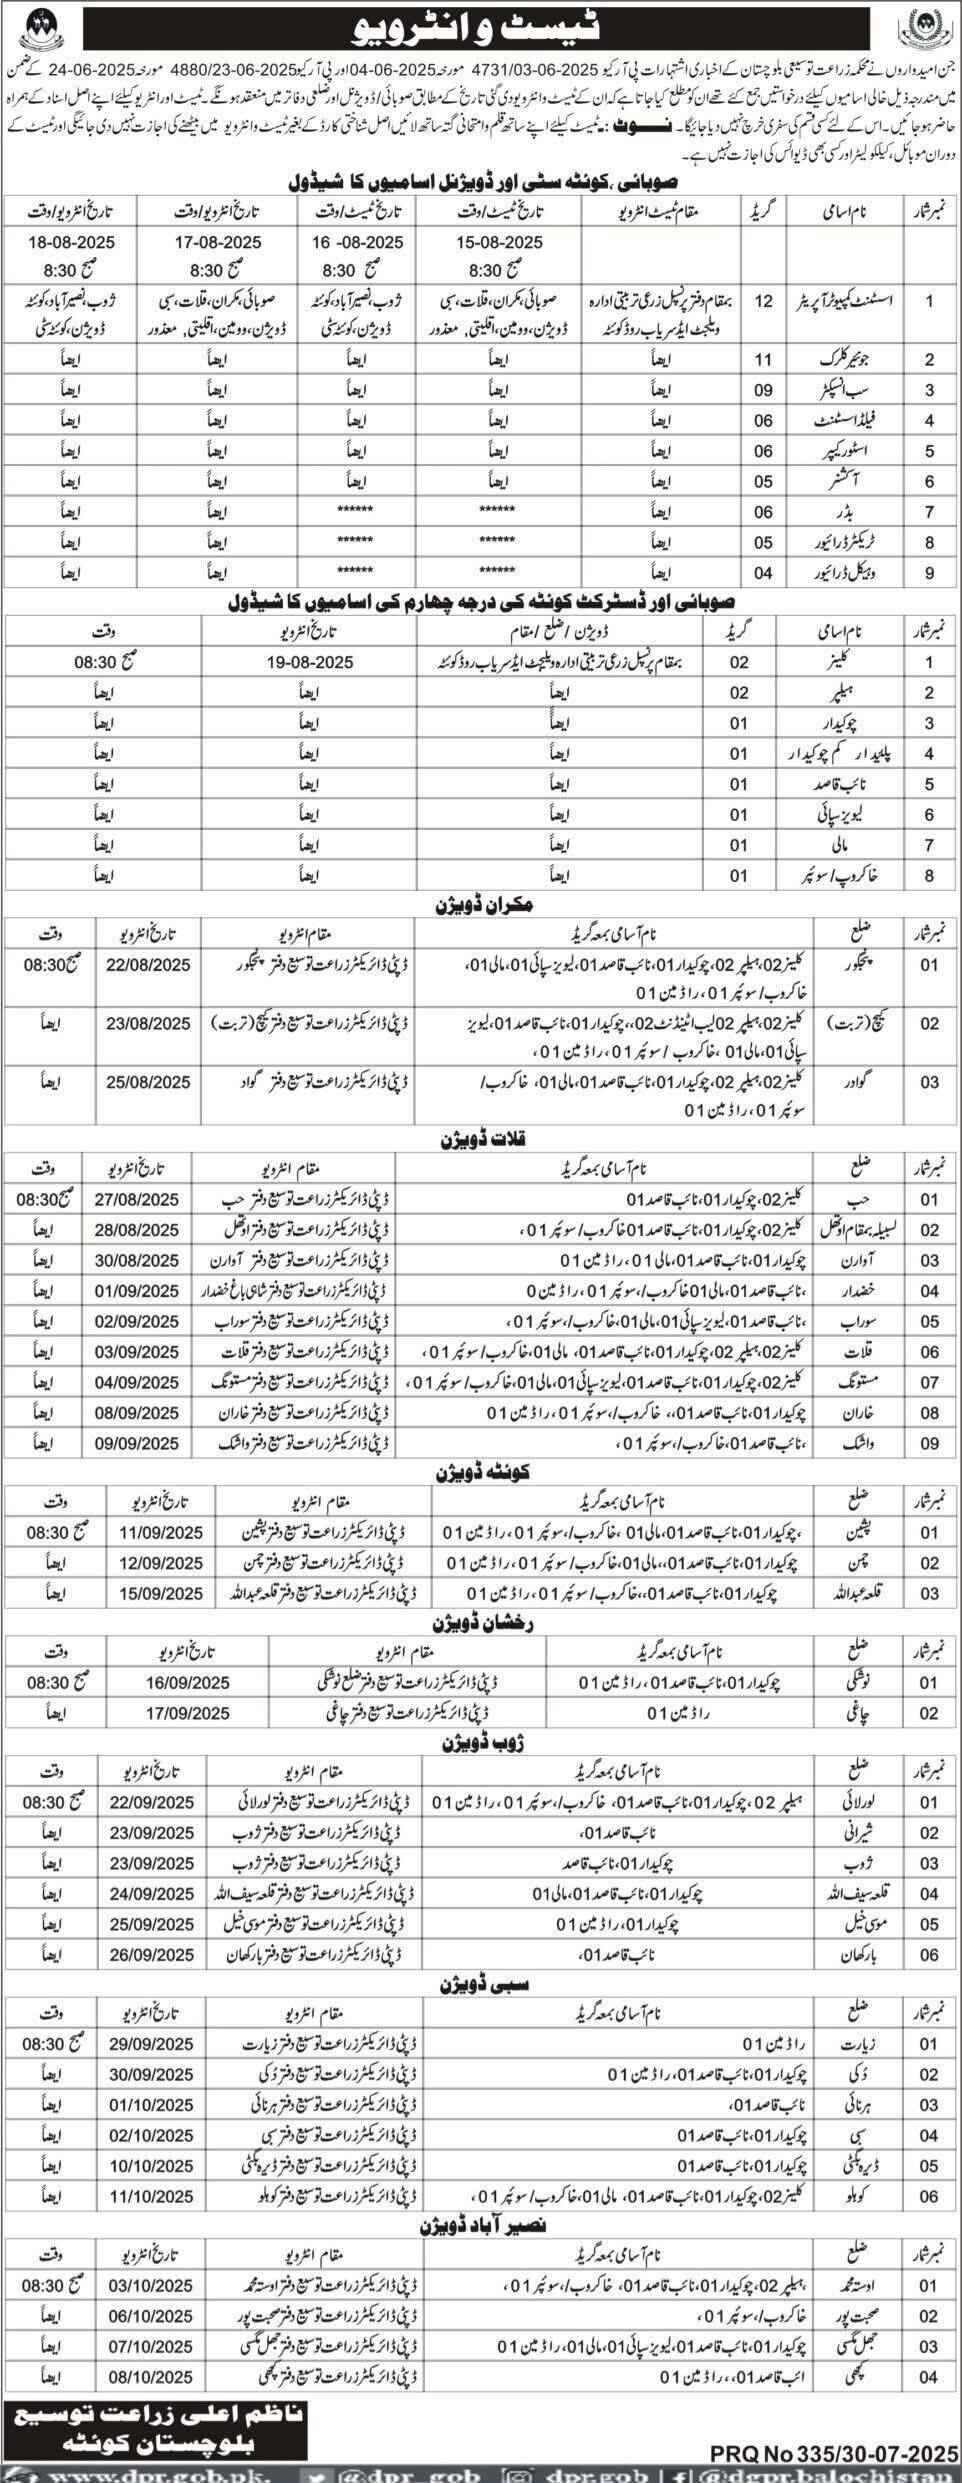 ٹیسٹ و انٹرویو
جن امیدواروں نے محکمہ زراعت توسیعی بلوچستان کے اخباری اشتہارات پی آر کیو 4731/03-06-2025 مورخہ 04-06-2025 اور پی آر کیو 4880/23-06-2025 مورخہ 24-06-2025 کے ضمن
میں مندرجہ ذیل خالی اسامیوں کیلئے درخواستیں جمع کئے تھے ان کو مطلع کیا جاتا ہے کہ ان کے ٹیسٹ و انٹرویو دی گئی تاریخ کے مطابق صوبائی / ڈویژنل اور ضلعی دفاتر میں منعقد ہونگے۔ ٹیسٹ اور انٹرویو کیلئے اپنے اصل اسناد کے ہمراہ
حاضر ہو جائیں۔ اس کے لئے کسی قسم کی سفری خرچ نہیں دیا جائیگا۔ نوٹ:۔ ٹیسٹ کیلئے اپنے ساتھ قلم و امتحانی گتہ ساتھ لائیں اصل شناختی کارڈ کے بغیر ٹیسٹ و انٹرویو میں بیٹھنے کی اجازت نہیں دی جائیگی اور ٹیسٹ کے
دوران موبائل، کیلکولیٹر اور کسی بھی ڈیوائس کی اجازت نہیں ہے۔
صوبائی، کوئٹہ سٹی اور ڈویژنل اسامیوں کا شیڈول
نمبر شمار نام اسامی گریڈ مقام ٹیسٹ انٹرویو تاریخ ٹیسٹ/وقت تاریخ ٹیسٹ/وقت تاریخ انٹرویو/وقت تاریخ انٹرویو/وقت
15-08-2025 16-08-2025 17-08-2025 18-08-2025
صبح 8:30 صبح 8:30 صبح 8:30 صبح 8:30
1 اسسٹنٹ کمپیوٹر آپریٹر 12 بمقام دفتر پرنسپل زرعی تربیتی ادارہ صوبائی، مکران، قلات، سبی ژوب، نصیر آباد، کوئٹہ صوبائی، مکران، قلات، سبی ژوب، نصیر آباد، کوئٹہ
ویلجٹ ایڈ سریاب روڈ کوئٹہ ڈویژن، وومین، اقلیتی, معذور ڈویژن، کوئٹہ سٹی ڈویژن، وومین، اقلیتی, معذور ڈویژن، کوئٹہ سٹی
2 جونیئر کلرک 11 ایضاً ایضاً ایضاً ایضاً ایضاً
3 سب انسپکٹر 09 ایضاً ایضاً ایضاً ایضاً ایضاً
4 فیلڈ اسسٹنٹ 06 ایضاً ایضاً ایضاً ایضاً ایضاً
5 اسٹور کیپر 06 ایضاً ایضاً ایضاً ایضاً ایضاً
6 آکشنر 05 ایضاً ایضاً ایضاً ایضاً ایضاً
7 بڈر 06 ایضاً ****** ****** ایضاً ایضاً
8 ٹریکٹر ڈرائیور 05 ایضاً ****** ****** ایضاً ایضاً
9 وہیکل ڈرائیور 04 ایضاً ****** ****** ایضاً ایضاً
صوبائی اور ڈسٹرکٹ کوئٹہ کی درجہ چہارم کی اسامیوں کا شیڈول
نمبر شمار نام اسامی گریڈ ڈویژن / ضلع / مقام تاریخ انٹرویو وقت
1 کلینر 02 بمقام پرنسپل زرعی تربیتی ادارہ ویلجٹ ایڈ سریاب روڈ کوئٹہ 19-08-2025 صبح 08:30
2 ہیلپر 02 ایضاً ایضاً ایضاً
3 چوکیدار 01 ایضاً ایضاً ایضاً
4 پلیدار کم چوکیدار 01 ایضاً ایضاً ایضاً
5 نائب قاصد 01 ایضاً ایضاً ایضاً
6 لیویز سپائی 01 ایضاً ایضاً ایضاً
7 مالی 01 ایضاً ایضاً ایضاً
8 خاکروب/سوئپر 01 ایضاً ایضاً ایضاً
مکران ڈویژن
نمبر شمار ضلع نام آسامی بمعہ گریڈ مقام انٹرویو تاریخ انٹرویو وقت
01 پنجگور کلینر 02، ہیلپر 02، چوکیدار 01، نائب قاصد 01، لیویز سپائی 01، مالی 01، ڈپٹی ڈائریکٹر زراعت توسیع دفتر پنجگور 22/08/2025 صبح 08:30
خاکروب/سوئپر 01، راڈ مین 01
02 کیچ (تربت) کلینر 02، ہیلپر 02 لیب اٹینڈنٹ 02،، چوکیدار 01، نائب قاصد 01، لیویز ڈپٹی ڈائریکٹر زراعت توسیع دفتر کیچ (تربت) 23/08/2025 ایضاً
سپائی 01، مالی 01، خاکروب / سوئپر 01، راڈ مین 01،
03 گوادر کلینر 02، ہیلپر 02، چوکیدار 01، نائب قاصد 01، مالی 01، خاکروب/ ڈپٹی ڈائریکٹر زراعت توسیع دفتر گواد 25/08/2025 ایضاً
سوئپر 01، راڈ مین 01
قلات ڈویژن
نمبر شمار ضلع نام آسامی بمعہ گریڈ مقام انٹرویو تاریخ انٹرویو وقت
01 حب کلینر 02، چوکیدار 01، نائب قاصد 01 ڈپٹی ڈائریکٹر زراعت توسیع دفتر حب 27/08/2025 صبح 08:30
02 لسبیلہ بمقام اوتھل کلینر 02، چوکیدار 01، نائب قاصد 01 خاکروب/سوئپر 01، ڈپٹی ڈائریکٹر زراعت توسیع دفتر اوتھل 28/08/2025 ایضاً
03 آوارن چوکیدار 01، نائب قاصد 01، مالی 01، راڈ مین 01 ڈپٹی ڈائریکٹر زراعت توسیع دفتر آوارن 30/08/2025 ایضاً
04 خضدار ،نائب قاصد 01، مالی 01 خاکروب/، سوئپر 01، راڈ مین 0 ڈپٹی ڈائریکٹر زراعت توسیع دفتر شاہی باغ خضدار 01/09/2025 ایضاً
05 سوراب ،نائب قاصد 01، لیویز سپائی 01، مالی 01، خاکروب/، سوئپر 01، ڈپٹی ڈائریکٹر زراعت توسیع دفتر سوراب 02/09/2025 ایضاً
06 قلات کلینر 02، ہیلپر 02، چوکیدار 01، نائب قاصد 01، مالی 01، خاکروب/سوئپر 01، ڈپٹی ڈائریکٹر زراعت توسیع دفتر قلات 03/09/2025 ایضاً
07 مستونگ کلینر 02، چوکیدار 01، نائب قاصد 01، لیویز سپائی 01، مالی 01، خاکروب/سوئپر 01، ڈپٹی ڈائریکٹر زراعت توسیع دفتر مستونگ 04/09/2025 ایضاً
08 خاران چوکیدار 01، نائب قاصد 01،، خاکروب/، سوئپر 01، راڈ مین 01 ڈپٹی ڈائریکٹر زراعت توسیع دفتر خاران 08/09/2025 ایضاً
09 واشک ،نائب قاصد 01، خاکروب/، سوئپر 01، ڈپٹی ڈائریکٹر زراعت توسیع دفتر واشک 09/09/2025 ایضاً
کوئٹہ ڈویژن
نمبر شمار ضلع نام آسامی بمعہ گریڈ مقام انٹرویو تاریخ انٹرویو وقت
01 پشین ،چوکیدار 01، نائب قاصد 01، مالی 01، خاکروب/، سوئپر 01، راڈ مین 01 ڈپٹی ڈائریکٹر زراعت توسیع دفتر پشین 11/09/2025 صبح 08:30
02 چمن چوکیدار 01، نائب قاصد 01،، مالی 01، خاکروب/سوئپر 01، راڈ مین 01 ڈپٹی ڈائریکٹر زراعت توسیع دفتر چمن 12/09/2025 ایضاً
03 قلعہ عبداللہ چوکیدار 01، نائب قاصد 01،، خاکروب/سوئپر 01، راڈ مین 01 ڈپٹی ڈائریکٹر زراعت توسیع دفتر قلعہ عبداللہ 15/09/2025 ایضاً
رخشان ڈویژن
نمبر شمار ضلع نام آسامی بمعہ گریڈ مقام انٹرویو تاریخ انٹرویو وقت
01 نوشکی چوکیدار 01، نائب قاصد 01، راڈ مین 01 ڈپٹی ڈائریکٹر زراعت توسیع دفتر ضلع نوشکی 16/09/2025 صبح 08:30
02 چاغی راڈ مین 01 ڈپٹی ڈائریکٹر زراعت توسیع دفتر چاغی 17/09/2025 ایضاً
ژوب ڈویژن
نمبر شمار ضلع نام آسامی بمعہ گریڈ مقام انٹرویو تاریخ انٹرویو وقت
01 لورلائی ہیلپر 02، چوکیدار 01، نائب قاصد 01، خاکروب/، سوئپر 01، راڈ مین 01 ڈپٹی ڈائریکٹر زراعت توسیع دفتر لورلائی 22/09/2025 صبح 08:30
02 شیرانی نائب قاصد 01، ڈپٹی ڈائریکٹر زراعت توسیع دفتر ژوب 23/09/2025 ایضاً
03 ژوب چوکیدار 01، نائب قاصد ڈپٹی ڈائریکٹر زراعت توسیع دفتر ژوب 23/09/2025 ایضاً
04 قلعہ سیف اللہ چوکیدار 01، نائب قاصد 01، مالی 01 ڈپٹی ڈائریکٹر زراعت توسیع دفتر قلعہ سیف اللہ 24/09/2025 ایضاً
05 موسیٰ خیل چوکیدار 01، راڈ مین 01 ڈپٹی ڈائریکٹر زراعت توسیع دفتر موسیٰ خیل 25/09/2025 ایضاً
06 بارکھان نائب قاصد 01، ڈپٹی ڈائریکٹر زراعت توسیع دفتر بارکھان 26/09/2025 ایضاً
سبی ڈویژن
نمبر شمار ضلع نام آسامی بمعہ گریڈ مقام انٹرویو تاریخ انٹرویو وقت
01 زیارت راڈ مین 01 ڈپٹی ڈائریکٹر زراعت توسیع دفتر زیارت 29/09/2025 صبح 08:30
02 دُکی چوکیدار 01، نائب قاصد 01، راڈ مین 01 ڈپٹی ڈائریکٹر زراعت توسیع دفتر دُکی 30/09/2025 ایضاً
03 ہرنائی نائب قاصد 01، ڈپٹی ڈائریکٹر زراعت توسیع دفتر ہرنائی 01/10/2025 ایضاً
04 سبی چوکیدار 01، نائب قاصد 01 ڈپٹی ڈائریکٹر زراعت توسیع دفتر سبی 02/10/2025 ایضاً
05 ڈیرہ بگٹی چوکیدار 01، نائب قاصد 01 ڈپٹی ڈائریکٹر زراعت توسیع دفتر ڈیرہ بگٹی 10/10/2025 ایضاً
06 کوہلو کلینر 02، چوکیدار 01، نائب قاصد 01، مالی 01، خاکروب/سوئپر 01، ڈپٹی ڈائریکٹر زراعت توسیع دفتر کوہلو 11/10/2025 ایضاً
نصیر آباد ڈویژن
نمبر شمار ضلع نام آسامی بمعہ گریڈ مقام انٹرویو تاریخ انٹرویو وقت
01 اوستہ محمد ،ہیلپر 02، چوکیدار 01، نائب قاصد 01، خاکروب/، سوئپر 01، ڈپٹی ڈائریکٹر زراعت توسیع دفتر اوستہ محمد 03/10/2025 صبح 08:30
02 صحبت پور خاکروب/، سوئپر 01، ڈپٹی ڈائریکٹر زراعت توسیع دفتر صحبت پور 06/10/2025 ایضاً
03 جھل مگسی چوکیدار 01، نائب قاصد 01، لیویز سپائی 01، مالی 01، راڈ مین 01 ڈپٹی ڈائریکٹر زراعت توسیع دفتر جھل مگسی 07/10/2025 ایضاً
04 کچھی ائب قاصد 01،، راڈ مین 01 ڈپٹی ڈائریکٹر زراعت توسیع دفتر کچھی 08/10/2025 ایضاً
ناظم اعلی زراعت توسیع
بلوچستان کوئٹہ
PRQ No 335/30-07-2025
www.dpr.gob.pk. @dpr_gob dpr.gob @dgpr.balochistan